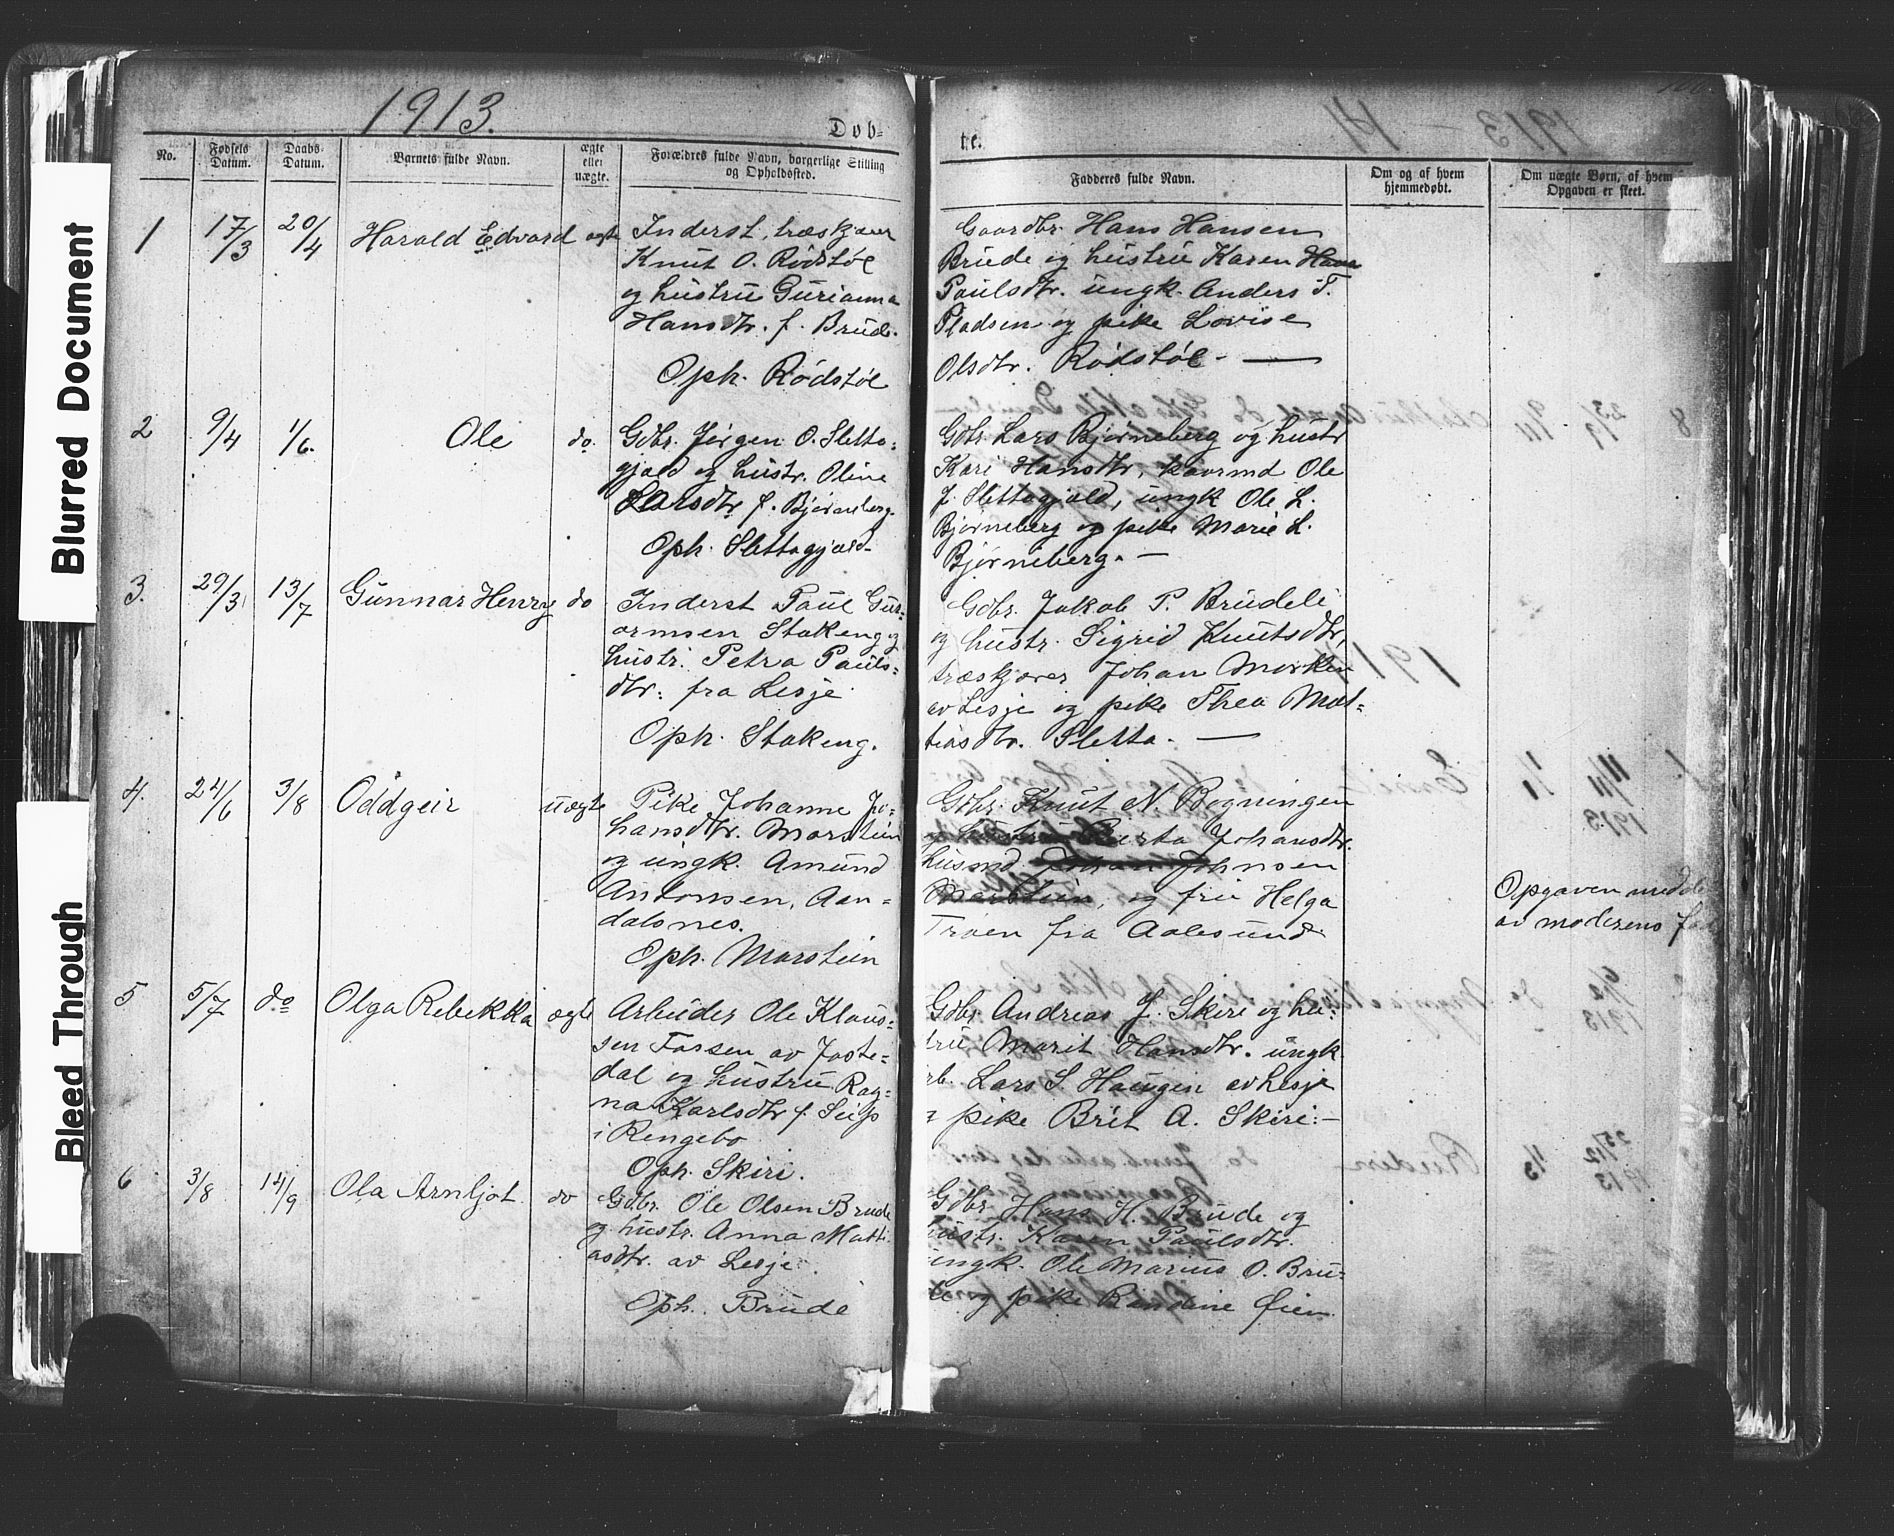 Blurred Document
Bleed Through
1913.
Døb=
te.
No.
Fødsels Datum.
Daabs Datum.
Barnets fulde Navn.
ægte eller uægte.
Forældres fulde Navn, borgerlige Stilling og Opholdssted.
Fadderes fulde Navn.
Om og af hvem hjemmedøbt.
Om uægte Børn, af hvem Opgaven er skeet.
1 17/3 20/4 Harald Edvard ægte
Inderst, træskjærer
Knut O. Rödstöl
og hustru Gurianna
Hansdtr. f. Brude.
Oph. Rödstöl
Gaardbr. Hans Hansen
Brude og hustru Karen
Paulsdtr. ungk. Anders T.
Pladsen og pike Lovise
Olsdtr. Rödstöl. —
2 9/4 1/6. Ole do.
Gdbr. Jörgen O. Sletta=
gjærd og hustr. Oline
Larsdtr f. Bjørneberg.
Oph. Slettagjærd
Gdbr. Lars Bjørneberg og hustr
Kari Hansdtr, kaarmd Ole
J. Slettagjærd, ungk Ole L.
Bjørneberg og pike Marie L.
Bjørneberg. —
3. 29/3 13/7 Gunnar Henry do
Inderst Paul
ormsen Stokeng og
hustr. Petra Pauls=
dtr. fra Lesje.
Oph. Stokeng.
Gdbr. Jakob P. Brudeli
og hustr. Sigrid Knutsdtr,
træskjærer Johan Morken
av Lesje og pike Thea Mat=
tiasdtr. Sletta. —
4. 24/6 3/8 Oddgeir uægte
Pike Johanne Jo=
hansdtr. Marstein
og ungk. Amund
Antonsen, Aan=
dalsnes.
Oph. Marstein
Gdbr. Knut N. Bogningen
og hustru Berta Johansdtr.
husmd. Johan Johnsen
Marstein, og fru Helga
Troen fra Aalesund.
Opgaven meddelt
av moderens
5 5/7 do Olga Rebekka ægte
Arbeider Ole Klaus=
sen Fossen av Joste=
dal og hustru Rag=
na Karlsdtr f. Seip
i Ringebo
Oph. Skiri.
Gdbr. Andreas J. Skiri og hu=
tru Marit Hansdtr. ungk
rb. Lars S. Haugen av Lesje
pike Brit A. Skiri. —
6 3/8 14/9 Ola Arnljot do
Gdbr. Ole Olsen Brude
og hustr. Anna Matti
asdtr. av Lesje.
Oph. Brude
Gdbr. Hans H. Brude og
hustr. Karen Paulsdtr.
ungk. Ole Marius O. Bru=
de og pike Randine Øien